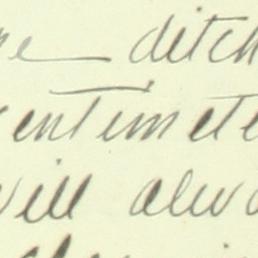 ne ditch
entimete
will alwa